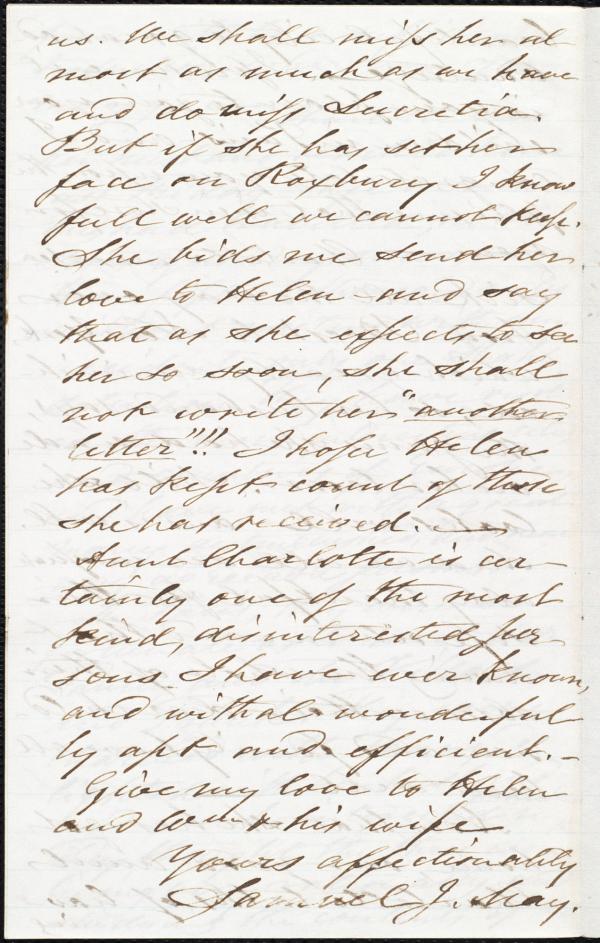 us. We shall miss her al
most as much as we have
and do miss Lucretia.
But if she has set her
face on Roxbury I know
full well we cannot keep.
She bids me send her
love to Helen – and say
that as she expects to see
her so soon, she shall
not write her "another
letter"!!! I hope Helen
has kept count of those
she has received. —
Aunt Charlotte is cer-
tainly one of the most
kind, disinterested per
sons I have ever known,
and withal wonderful
ly apt and efficient. –
Give my love to Helen
and Wm & his wife
Yours affectionately
Samuel J. May.